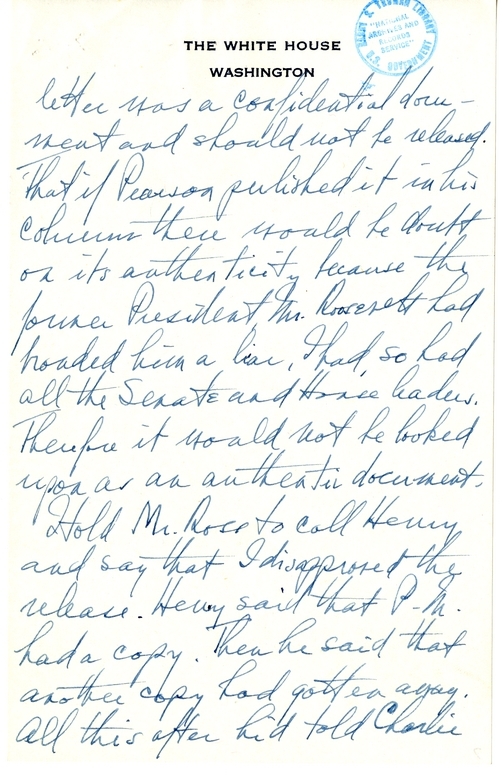 HARRY S. TRUMAN LIBRARY
"NATIONAL
ARCHIVES AND
RECORDS
SERVICE"
U.S. GOVERNMENT
THE WHITE HOUSE
WASHINGTON
letter was a confidential docu-
ment and should not be released.
That if Pearson published it in his
column there would be doubt
on its authenticity because the
former President Mr. Roosevelt had
branded him a liar, I had, so had
all the Senate and House leaders.
Therefore it would not be looked
upon as an authentic document.
I told Mr. Ross to call Henry
and say that I disapproved the
release. Henry said that P.M.
had a copy. Then he said that
another copy had gotten away.
All this after he'd told Charlie